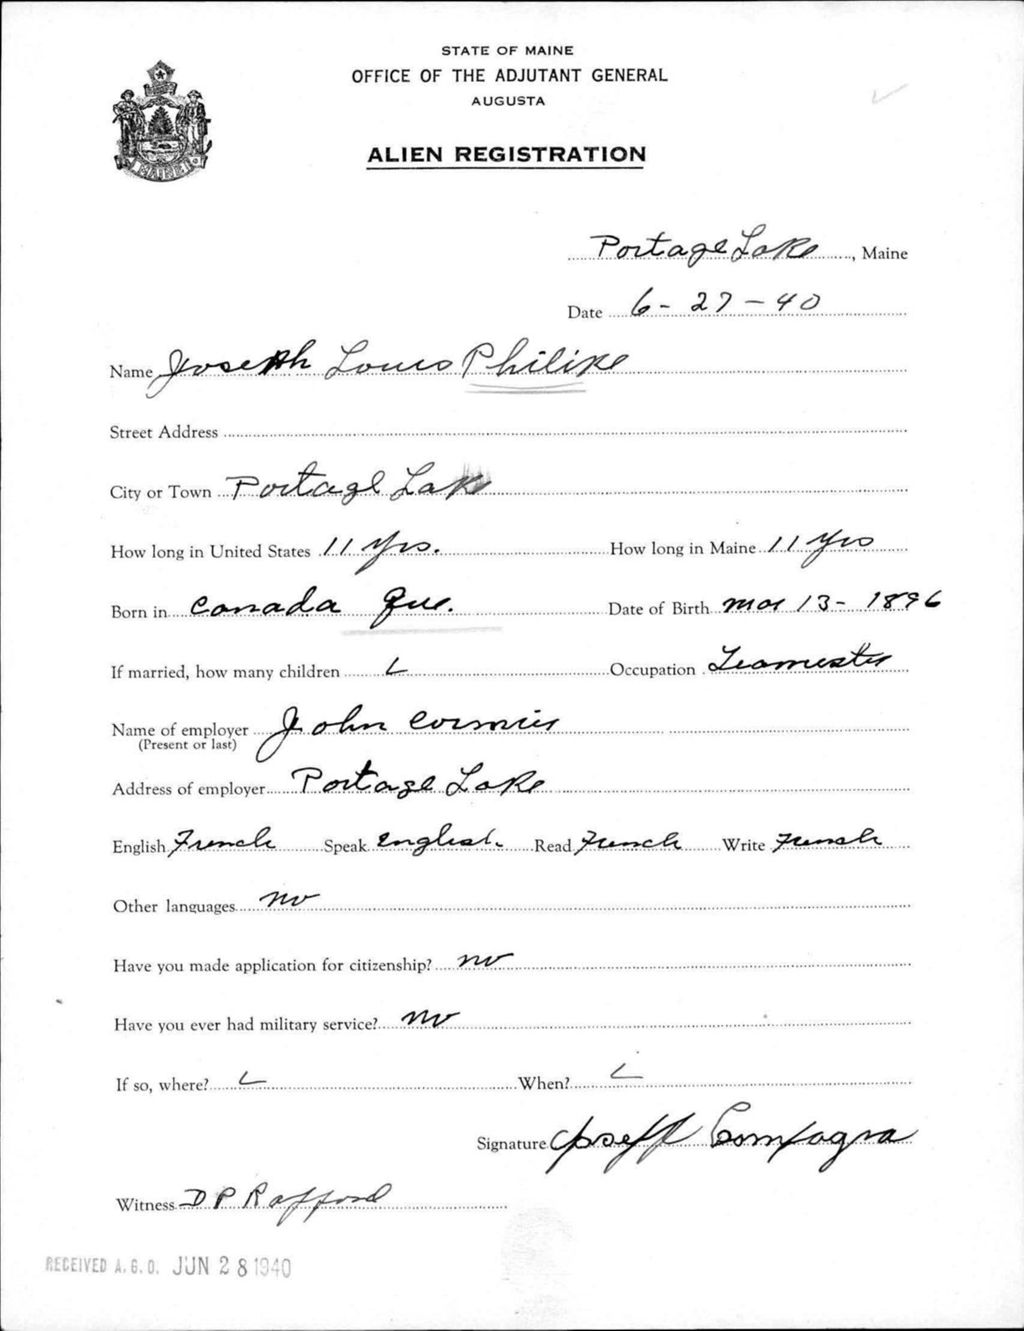 STATE OF MAINE
OFFICE OF THE ADJUTANT GENERAL
AUGUSTA
ALIEN REGISTRATION
MAINE
Portage Lake, Maine
Date 6-27-40
Name Joseph Louis Philipe
Street Address
City or Town Portage Lake
How long in United States 11 Yrs. How long in Maine 11 Yrs
Born in Canada Que. Date of Birth Mar 13-1896
If married, how many children L Occupation Teamester
Name of employer John Cormier
(Present or last)
Address of employer Portage Lake
English French Speak English Read French Write French
Other languages No
Have you made application for citizenship? No
Have you ever had military service? No
If so, where? L When? L
Signature Joseph Compagna
Witness D P Rafford
RECEIVED A.G.O. JUN 28 1940